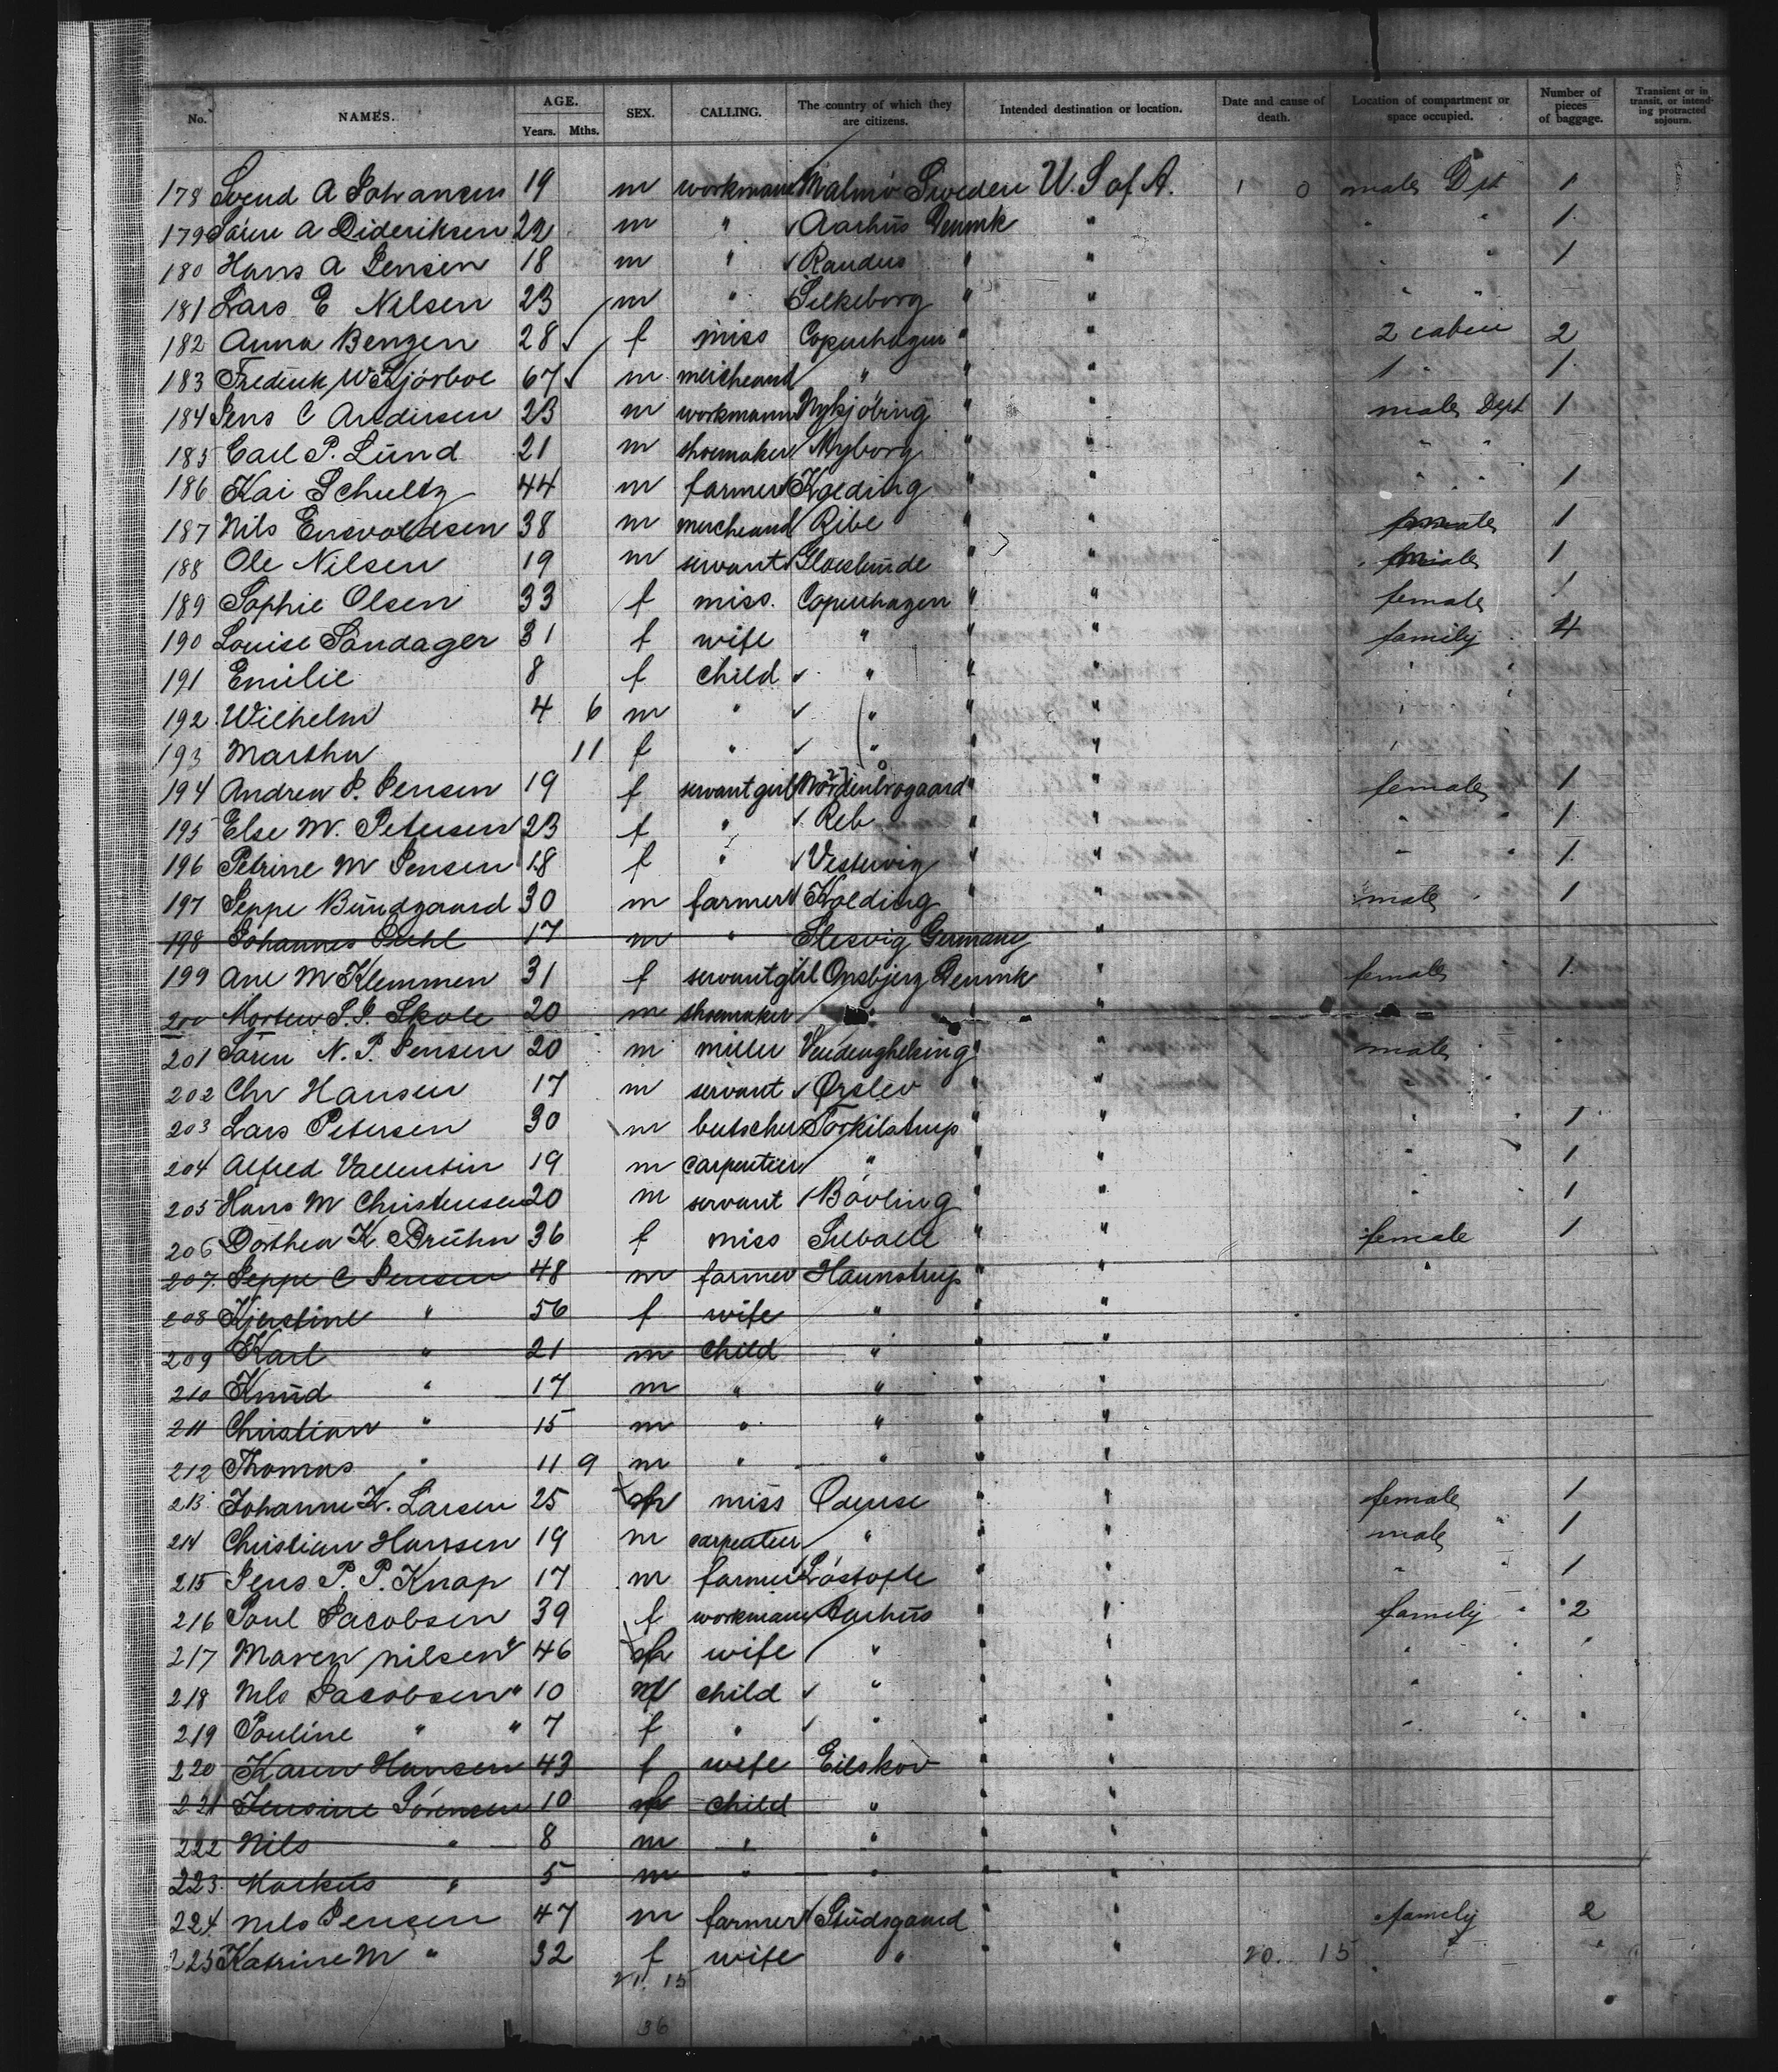 No. NAMES. AGE. Years. Mths. SEX. CALLING. The country of which they are citizens. Intended destination or location. Date and cause of death. Location of compartment or space occupied. Number of pieces of baggage. Transient or in transit, or intending protracted sojourn.
178 Svend A Johansen 19 m workmann Malmö Sweden U. S of A. 1 0 male Dpt 1
179 Sören A Dideriksen 22 m " Aarhus Denmk " " " 1
180 Hans A Jensen 18 m " Randers " " " " 1
181 Lars E Nilsen 23 m " Silkeborg " " " "
182 Anna Benzen 28 f miss Copenhagen " " 2 cabin 2
183 Fredrik W Kjörboe 67 m mercheand " " " 1 " 1
184 Jens C Andersen 23 m workmann Nykjöbing " " male Dept 1
185 Carl P. Lund 21 m shoemaker Nyborg " " " "
186 Kai Schultz 44 m farmer Kolding " " " " 1
187 Nils Enevoldsen 38 m mercheand Ribe " " male 1
188 Ole Nilsen 19 m servant " " male 1
189 Sophie Olsen 33 f miss. Copenhagen " " female 1
190 Louise Sandager 31 f wife " " " family 4
191 Emilie 8 f child " " " " "
192 Wilhelm 4 6 m " " " " " "
193 Martha 11 f " " " " "
194 Andrea P. Jensen 19 f servant girl " " female 1
195 Else M. Petersen 23 f " Reb " " " " 1
196 Petrine M Jensen 18 f " Vestervig " " " " 1
197 Jeppe Bundgaard 30 m farmer Kolding " " male 1
198 Johannes 17 m " Slesvig Germany "
199 Ane M Klemmen 31 f servantgirl Onsbjerg Denmk " female " 1
200 Morten P. P. Skole 20 m shoemaker " "
201 Sören N. P. Jensen 20 m miller " " male " "
202 Chr Hansen 17 m servant Ørslev " " " "
203 Lars Petersen 30 m butscher Torkilstrup " " " " 1
204 Alfred Vallentin 19 m carpentier " " " 1
205 Hans M Christensen 20 m servant Bövling " " " 1
206 Dorthea K. Bruhn 36 f miss " " female 1
207 Jeppe C Jensen 48 m farmer Haunstrup " " "
208 Kjerstine " 56 f wife " " "
209 Karl " 21 m child " " "
210 Knud " 17 m " " " "
211 Christian " 15 m " " " "
212 Thomas " 11 9 m " " " "
213 Johanne K. Larsen 25 f miss Odense " " female 1
214 Christian Hansen 19 m carpentier " " " male " 1
215 Jens P. P. Knap 17 m farmer " " " 1
216 Poul Jacobsen 39 f workmann Aarhus " " family " 2
217 Maren Nilsen " 46 f wife " " " " " "
218 Nils Jacobsen " 10 m child " " " " " "
219 Pouline " " 7 f " " " " " " "
220 Karen Hansen 43 f wife Eilskov " "
221 Jensine Sörensen 10 f child " " "
222 Nils " 8 m " " " "
223 Markus " 5 m " " " "
224 Nils Jensen 47 m farmer Studsgaard " " family 2
225 Katrine M " 32 f wife " " " 20. 15 " "
21. 15
36